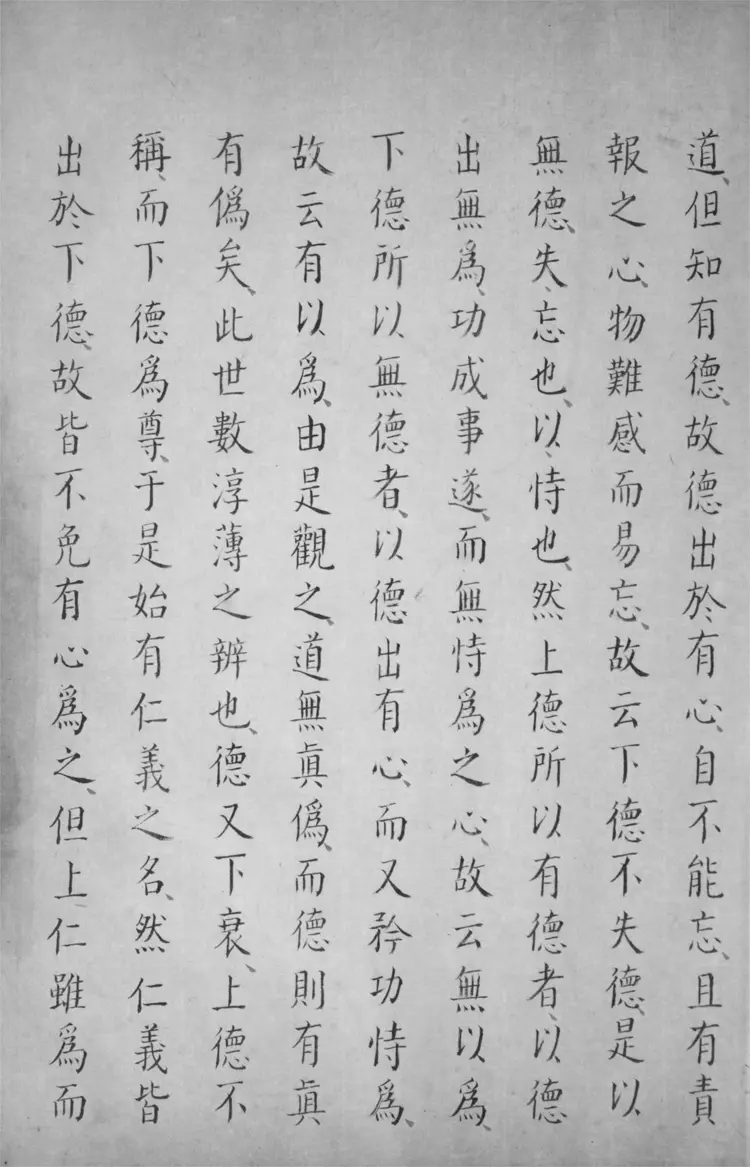 道、但知有德、故德出於有心、自不能忘、且有責
報之心、物難感而易忘、故云下德不失德、是以
無德、失、忘也、以、恃也、然上德所以有德者、以德
出無爲、功成事遂、而無恃爲之心、故云無以爲、
下德所以無德者、以德出有心、而又矜功恃爲、
故云有以爲、由是觀之、道無眞僞、而德則有眞
有僞矣、此世數淳薄之辨也、德又下衰、上德不
稱、而下德爲尊、于是始有仁義之名、然仁義皆
出於下德、故皆不免有心爲之、但上仁雖爲而